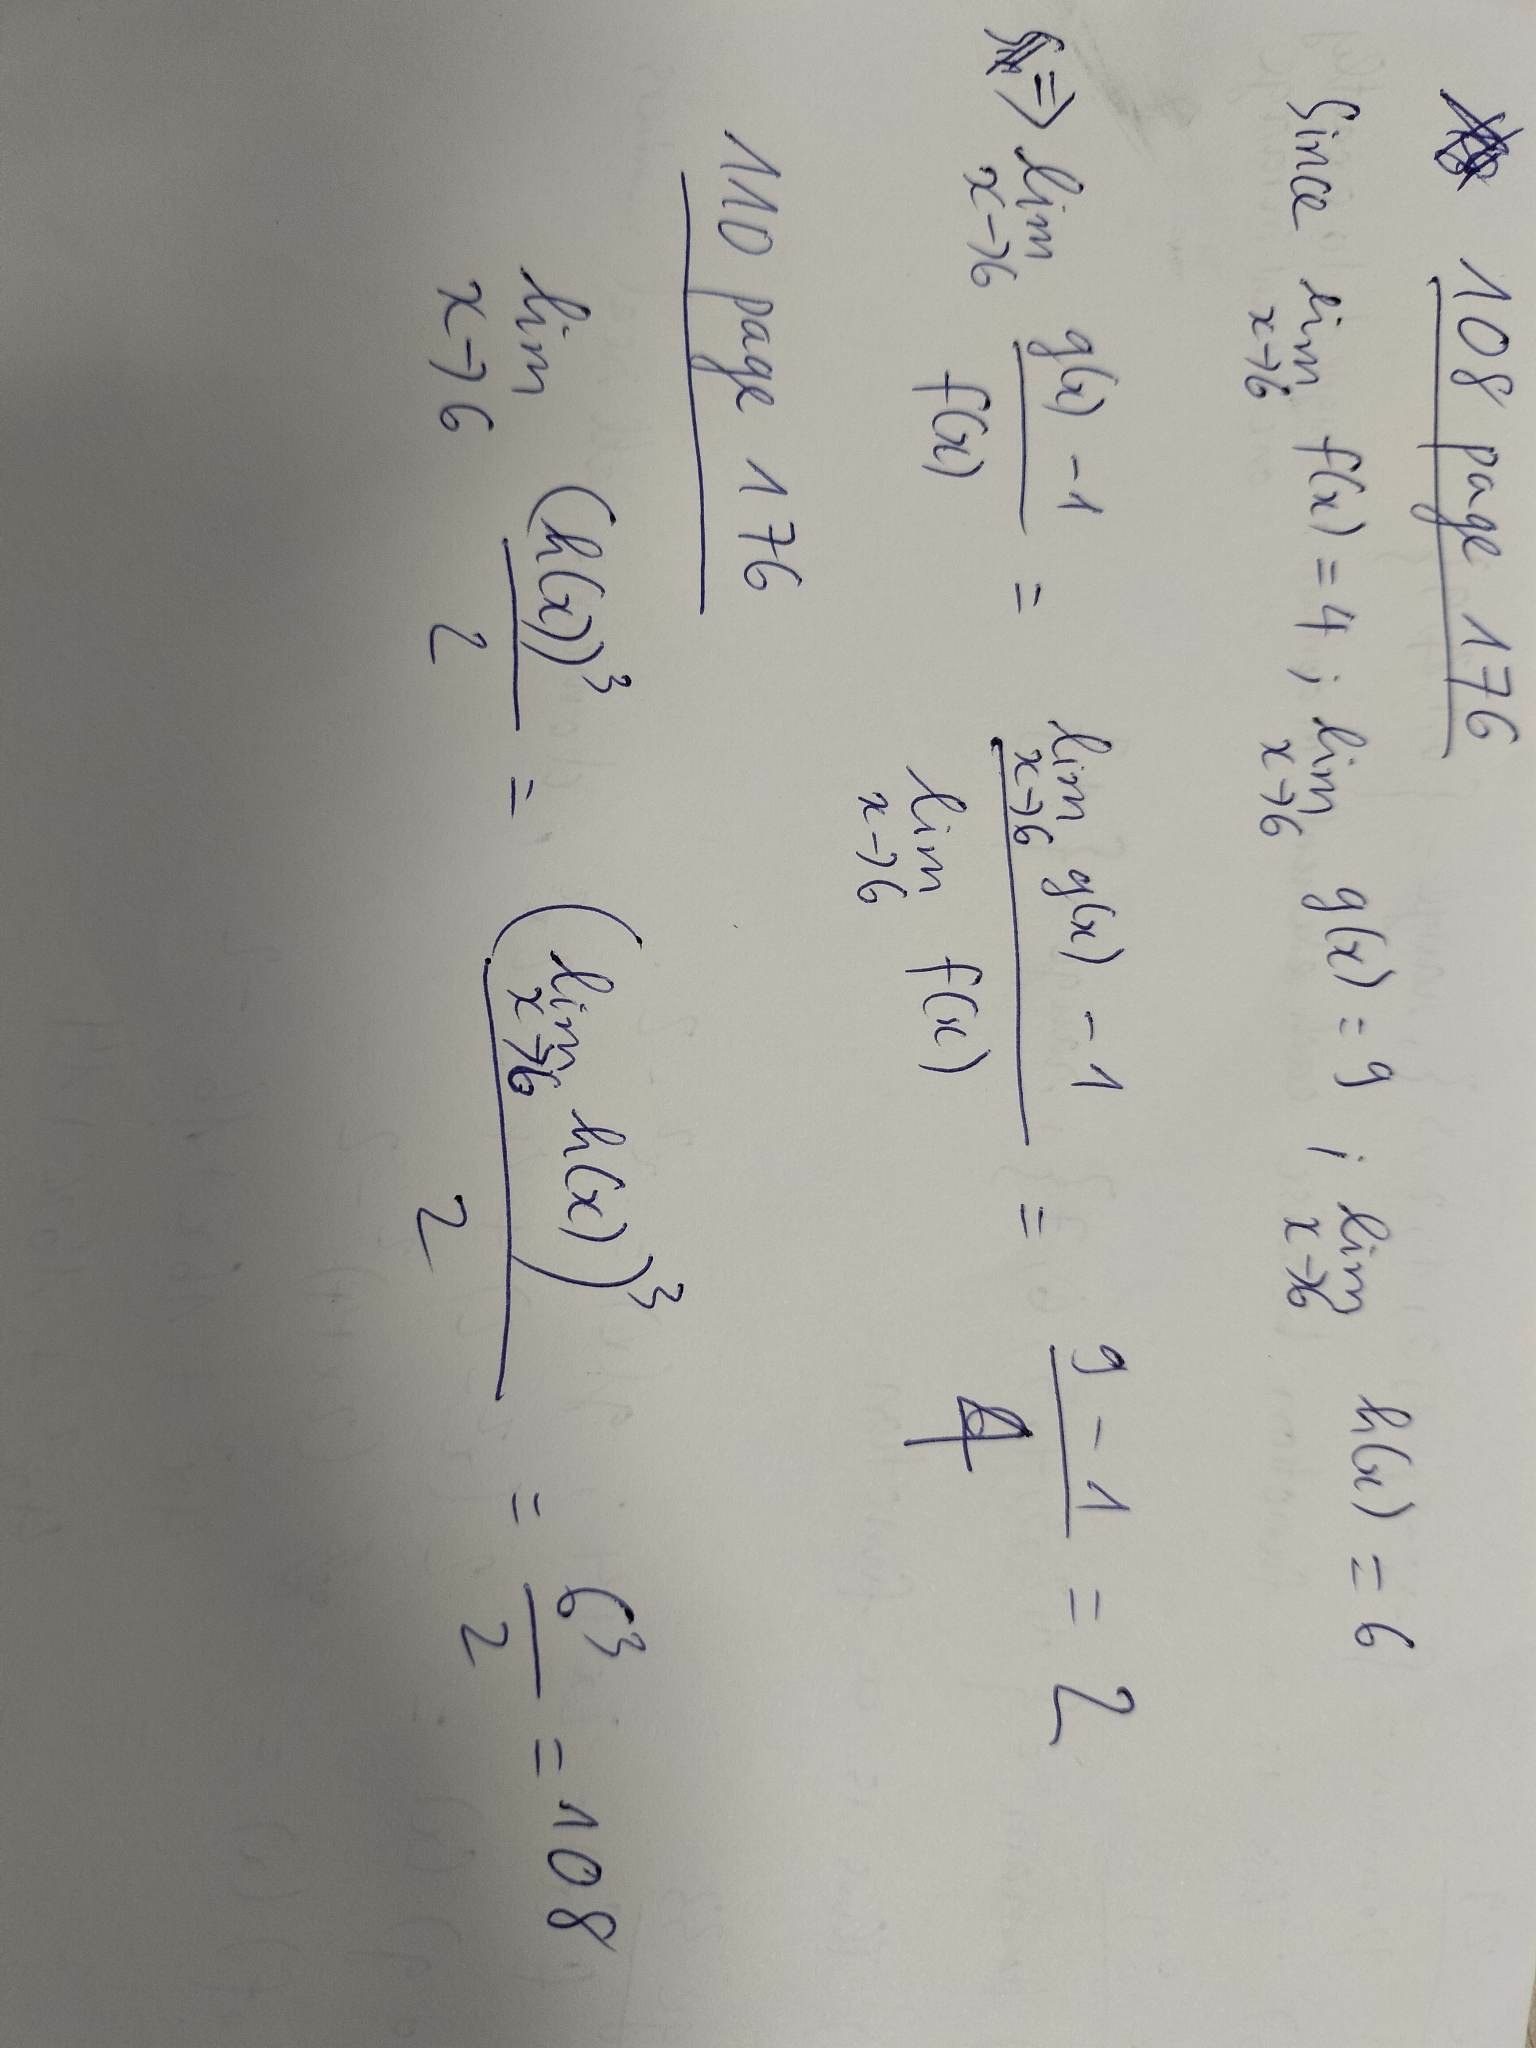 108 page 176
Since lim x→6 f(x) = 4 ; lim x→6 g(x) = 9 ; lim x→6 h(x) = 6
=> lim x→6 (g(x) - 1)/f(x) = (lim x→6 g(x) - 1)/(lim x→6 f(x)) = (9 - 1)/4 = 2
110 page 176
lim x→6 (h(x))³/2 = (lim x→6 h(x))³/2 = 6³/2 = 108